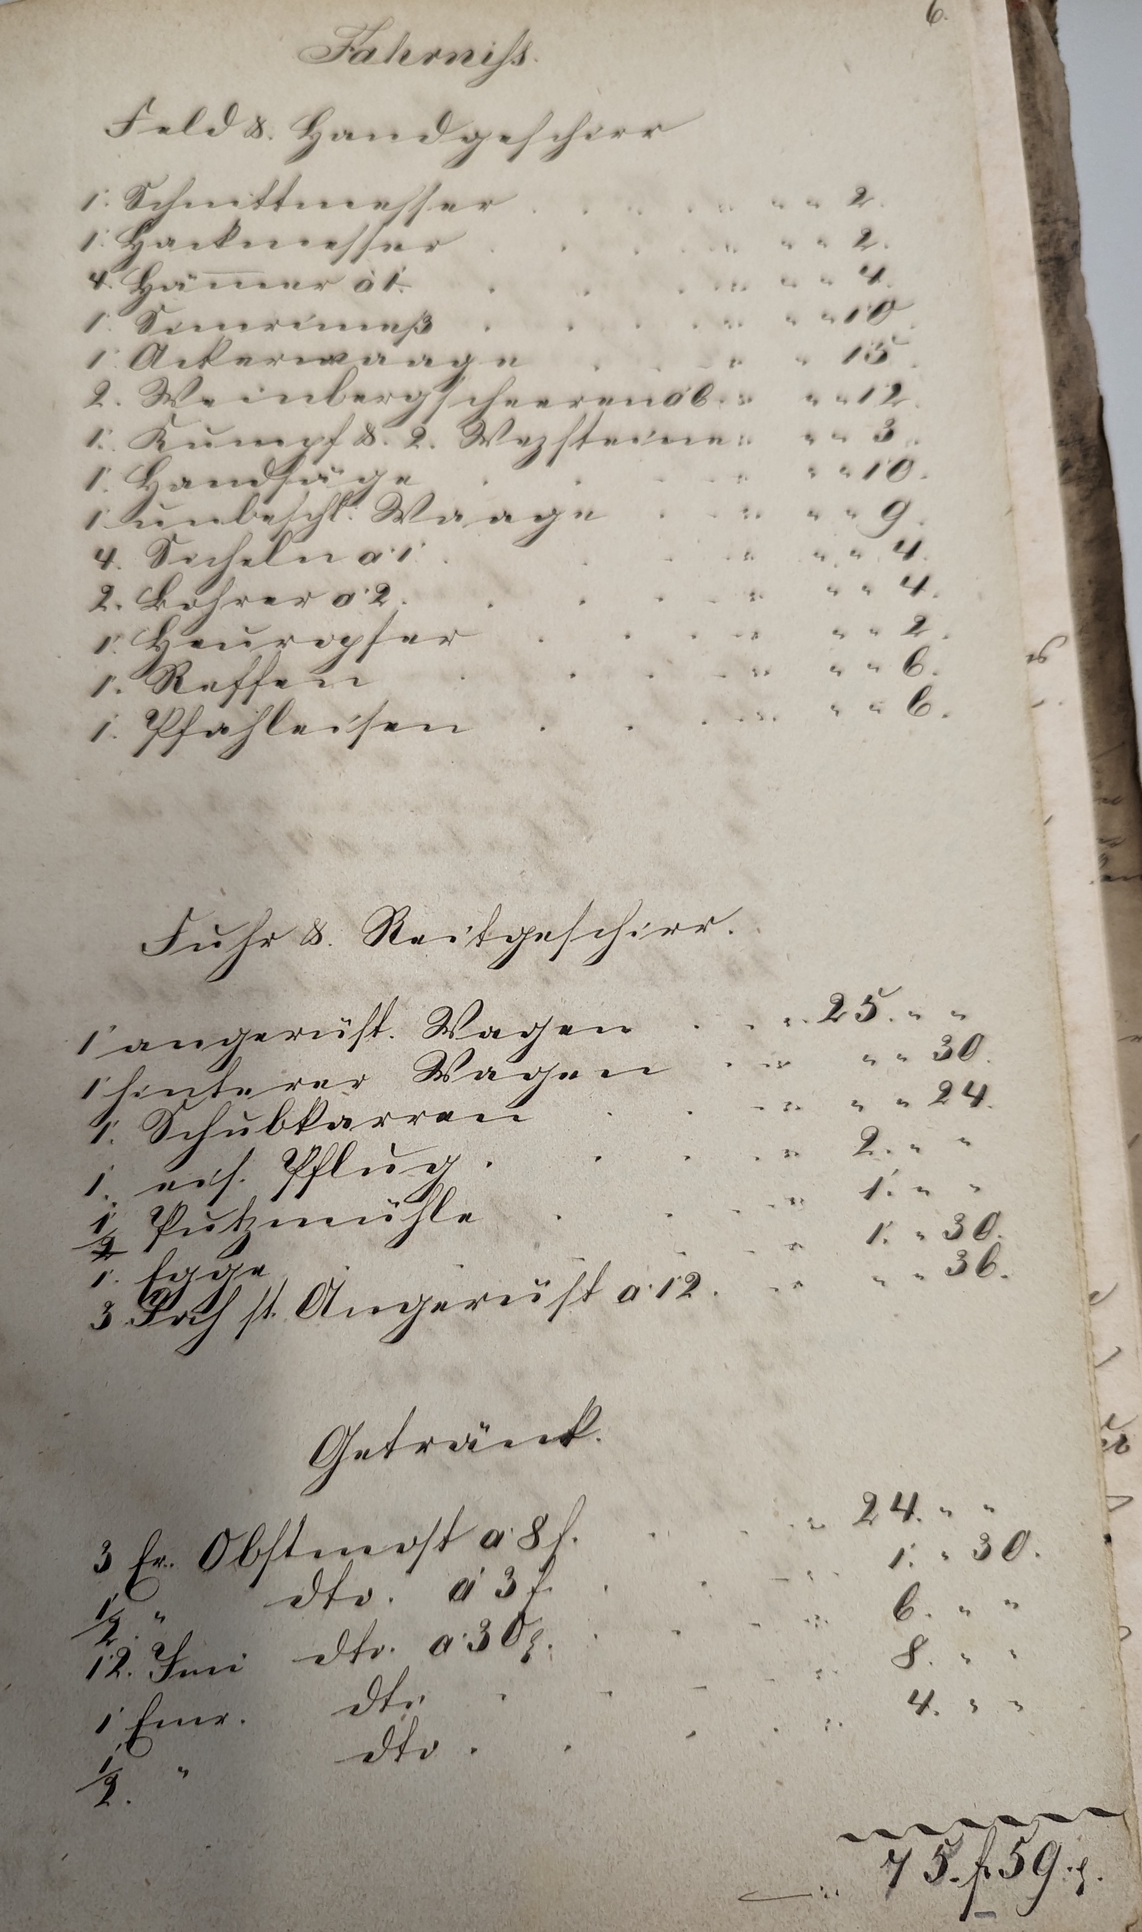 6.
Fahrniss.
Feld & Handgeschirr
1. Schnittmesser . . . . . " " 2.
1. Hackmesser . . . . " " 2.
4. Hämmer à 1. . . . . " " 4.
1. Simrimeß . . . . " " 10.
1. Ackerwaage . . . " 15.
2. Weinbergscheeren à 6. " " 12.
1. Kumpf &. 2. Wezsteine " " 3.
1. Handsäge . . . . " " 10.
1 unbeschl. Waage . . " " 9.
4. Sicheln a 1. . . . " " 4.
2. Bohrer a 2. . . . . " " 4.
1. Heuropfer . . . . " " 2.
1. Reffen . . . . " " 6.
1. Pfahleisen . . . . " " 6.
Fuhr &. Reitgeschirr.
1 angerüst. Wagen . . . 25. " "
1 hinterer Wagen . . " " 30.
1. Schubkarren . . . " " 24.
1. eis. Pflug . . . . 2. " "
1/2 Putzmühle . . . . 1. " "
1. Egge . . . . 1. " 30.
3 st. Angerüst a 12. . " " 36.
Getränk.
3 Er. Obstmost a 8 f. . . . 24. " "
1/2 " dto. a 3 f. . . . 1. " 30.
12. Imi dto. a 30 x. . . . 6. " "
1 Eimr. dto . . . . 8. " "
1/2. " dto . . . . 4. " "
75. f 59. x.